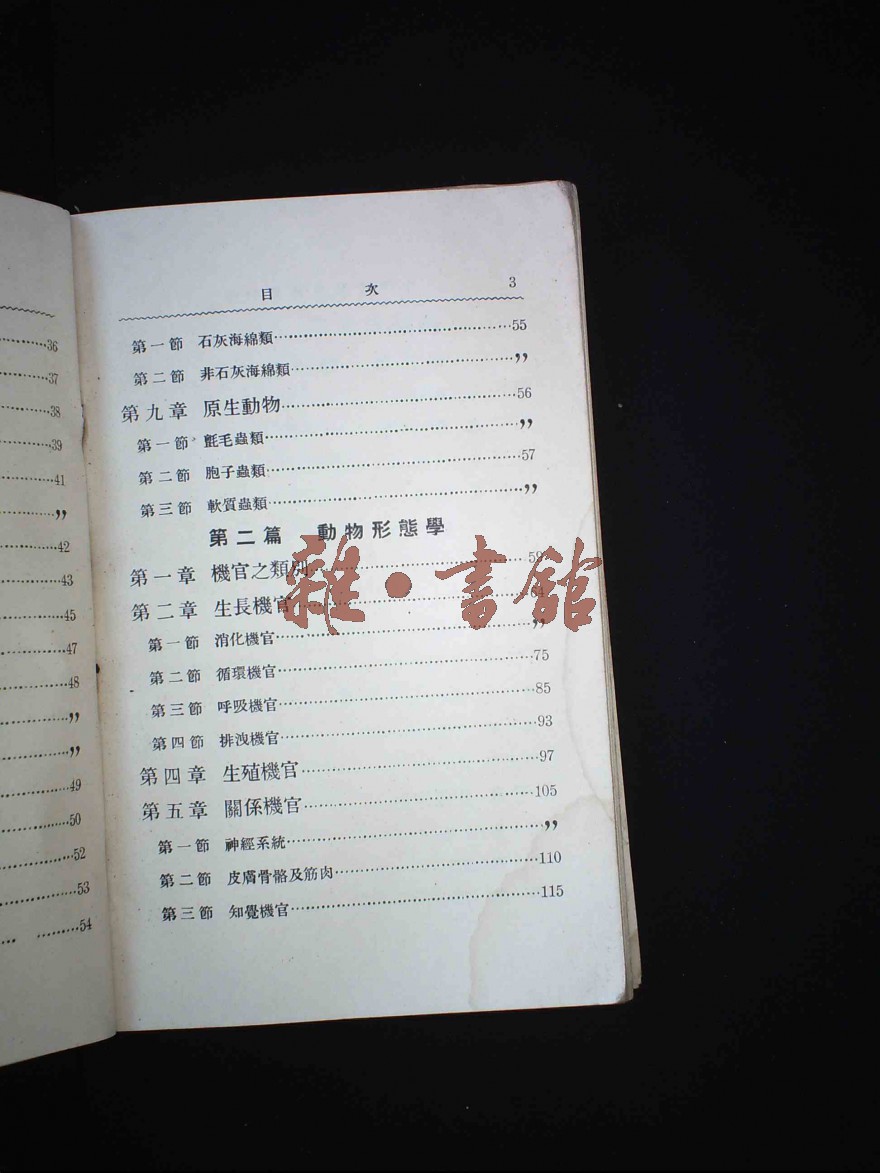 36
37
38
39
41
”
42
43
45
47
48
”
”
49
50
52
53
54
目 次 3
第一節 石灰海綿類 55
第二節 非石灰海綿類 ”
第九章 原生動物 56
第一節 氈毛蟲類 ”
第二節 胞子蟲類 57
第三節 軟質蟲類 ”
第二篇 動物形態學
第一章 機官之類別 59
第二章 生長機官 64
第一節 消化機官 ”
第二節 循環機官 75
第三節 呼吸機官 85
第四節 排洩機官 93
第四章 生殖機官 97
第五章 關係機官 105
第一節 神經系統 ”
第二節 皮膚骨骼及筋肉 110
第三節 知覺機官 115
雜·書館